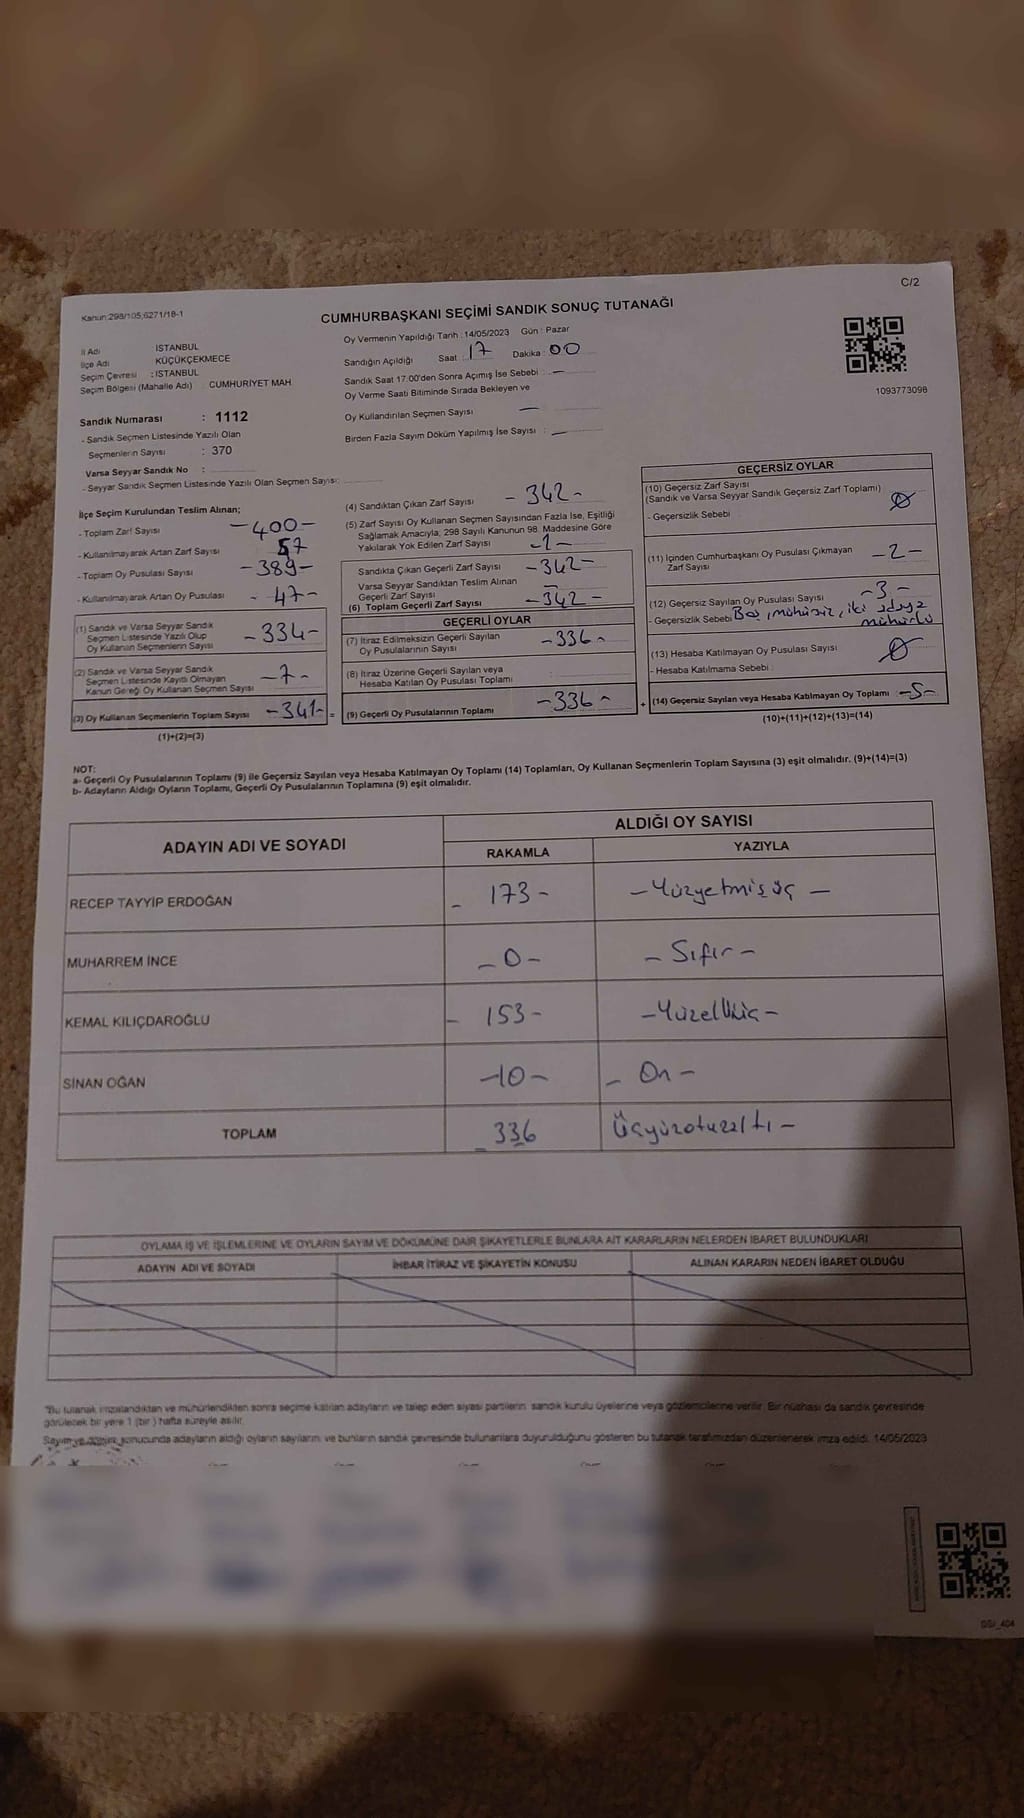 C/2
Kanun:298/105;6271/18-1
CUMHURBAŞKANI SEÇİMİ SANDIK SONUÇ TUTANAĞI
İl Adı İSTANBUL
İlçe Adı KÜÇÜKÇEKMECE
Seçim Çevresi : İSTANBUL
Seçim Bölgesi (Mahalle Adı) CUMHURİYET MAH.
Sandık Numarası : 1112
- Sandık Seçmen Listesinde Yazılı Olan
Seçmenlerin Sayısı : 370
Varsa Seyyar Sandık No :
- Seyyar Sandık Seçmen Listesinde Yazılı Olan Seçmen Sayısı:
Oy Vermenin Yapıldığı Tarih : 14/05/2023 Gün : Pazar
Sandığın Açıldığı Saat : 17 Dakika : 00
Sandık Saat 17:00'den Sonra Açımış İse Sebebi : —
Oy Verme Saati Bitiminde Sırada Bekleyen ve
Oy Kullandırılan Seçmen Sayısı —
Birden Fazla Sayım Döküm Yapılmış İse Sayısı : —
1093773098
İlçe Seçim Kurulundan Teslim Alınan;
- Toplam Zarf Sayısı -400-
- Kullanılmayarak Artan Zarf Sayısı 57
- Toplam Oy Pusulası Sayısı -389-
- Kullanılmayarak Artan Oy Pusulası - 47-
(1) Sandık ve Varsa Seyyar Sandık
Seçmen Listesinde Yazılı Olup
Oy Kullanan Seçmenlerin Sayısı - 334-
(2) Sandık ve Varsa Seyyar Sandık
Seçmen Listesinde Kayıtlı Olmayan
Kanun Gereği Oy Kullanan Seçmen Sayısı -7-
(3) Oy Kullanan Seçmenlerin Toplam Sayısı -341- =
(1)+(2)=(3)
(4) Sandıktan Çıkan Zarf Sayısı - 342-
(5) Zarf Sayısı Oy Kullanan Seçmen Sayısından Fazla İse, Eşitliği
Sağlamak Amacıyla, 298 Sayılı Kanunun 98. Maddesine Göre
Yakılarak Yok Edilen Zarf Sayısı -1-
Sandıkta Çıkan Geçerli Zarf Sayısı -342-
Varsa Seyyar Sandıktan Teslim Alınan
Geçerli Zarf Sayısı —
(6) Toplam Geçerli Zarf Sayısı -342-
GEÇERLİ OYLAR
(7) İtiraz Edilmeksizin Geçerli Sayılan
Oy Pusulalarının Sayısı -336-
(8) İtiraz Üzerine Geçerli Sayılan veya
Hesaba Katılan Oy Pusulası Toplamı :
(9) Geçerli Oy Pusulalarının Toplamı -336- +
GEÇERSİZ OYLAR
(10) Geçersiz Zarf Sayısı
(Sandık ve Varsa Seyyar Sandık Geçersiz Zarf Toplamı) Ø
- Geçersizlik Sebebi
(11) İçinden Cumhurbaşkanı Oy Pusulası Çıkmayan
Zarf Sayısı -2-
(12) Geçersiz Sayılan Oy Pusulası Sayısı -3-
- Geçersizlik Sebebi Boş, mühürsüz, iki adaya
mühürlü
(13) Hesaba Katılmayan Oy Pusulası Sayısı Ø
- Hesaba Katılmama Sebebi :
(14) Geçersiz Sayılan veya Hesaba Katılmayan Oy Toplamı -5-
(10)+(11)+(12)+(13)=(14)
NOT:
a- Geçerli Oy Pusulalarının Toplamı (9) ile Geçersiz Sayılan veya Hesaba Katılmayan Oy Toplamı (14) Toplamları, Oy Kullanan Seçmenlerin Toplam Sayısına (3) eşit olmalıdır. (9)+(14)=(3)
b- Adayların Aldığı Oyların Toplamı, Geçerli Oy Pusulalarının Toplamına (9) eşit olmalıdır.
ADAYIN ADI VE SOYADI
ALDIĞI OY SAYISI
RAKAMLA YAZIYLA
RECEP TAYYİP ERDOĞAN - 173- -Yüzyetmişüç-
MUHARREM İNCE -0- -Sıfır-
KEMAL KILIÇDAROĞLU - 153- -Yüzelliüç-
SİNAN OĞAN -10- -On-
TOPLAM 336 Üçyüzotuzaltı-
OYLAMA İŞ VE İŞLEMLERİNE VE OYLARIN SAYIM VE DÖKÜMÜNE DAİR ŞİKAYETLERLE BUNLARA AİT KARARLARIN NELERDEN İBARET BULUNDUKLARI
ADAYIN ADI VE SOYADI İHBAR İTİRAZ VE ŞİKAYETİN KONUSU ALINAN KARARIN NEDEN İBARET OLDUĞU
"Bu tutanak imzalandıktan ve mühürlendikten sonra seçime katılan adayların ve talep eden siyasi partilerin sandık kurulu üyelerine veya gözlemcilerine verilir. Bir nüshası da sandık çevresinde
görülecek bir yere 1 (bir) hafta süreyle asılır.
Sayım ve döküm sonucunda adayların aldığı oyların sayılarını ve bunların sandık çevresinde bulunanlara duyurulduğunu gösteren bu tutanak tarafımızdan düzenlenerek imza edildi. 14/05/2023